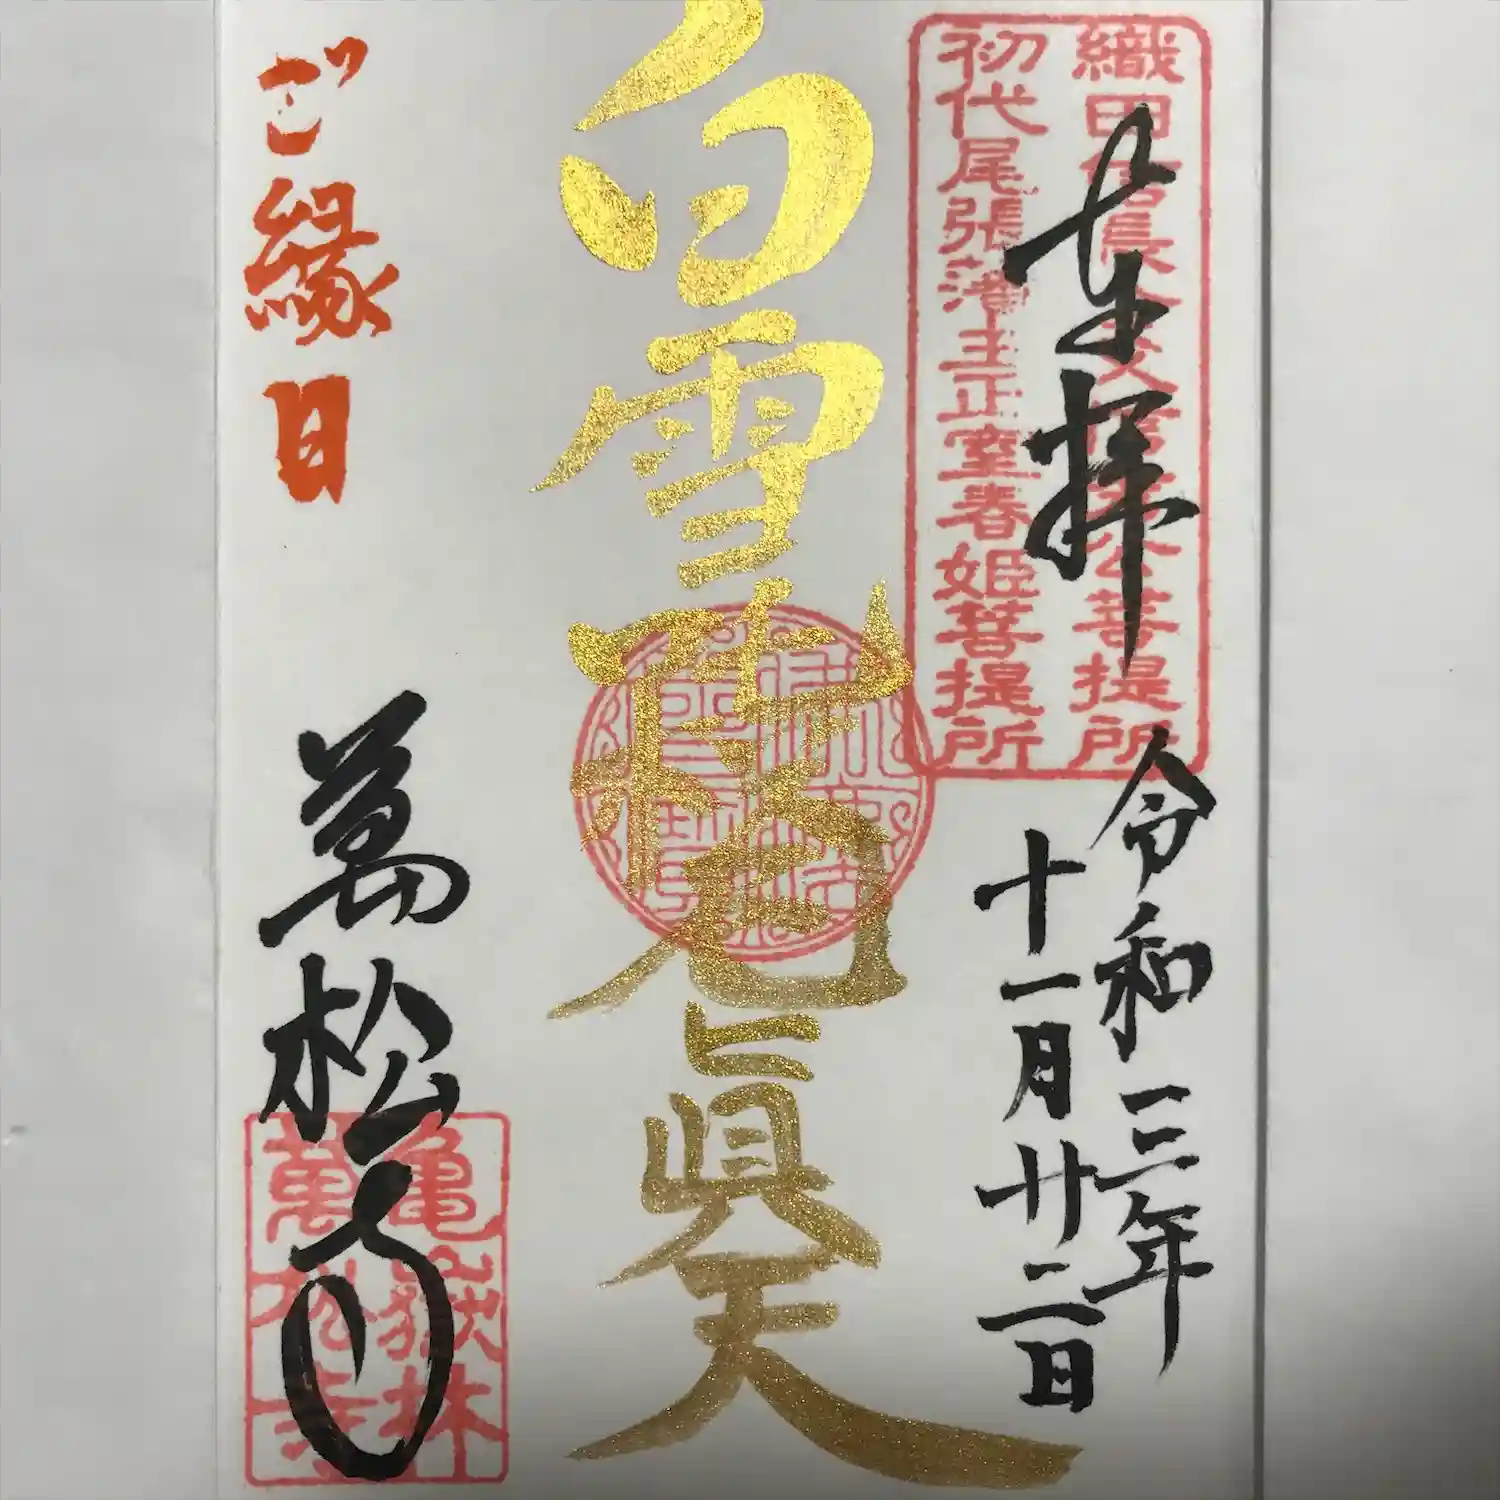 織田信長公父信秀公菩提所
初代尾張藩主正室春姫菩提所
奉拝
令和三年
十一月廿二日
白雪吒枳尼眞天
ご縁日
萬松寺
亀嶽林
萬松寺